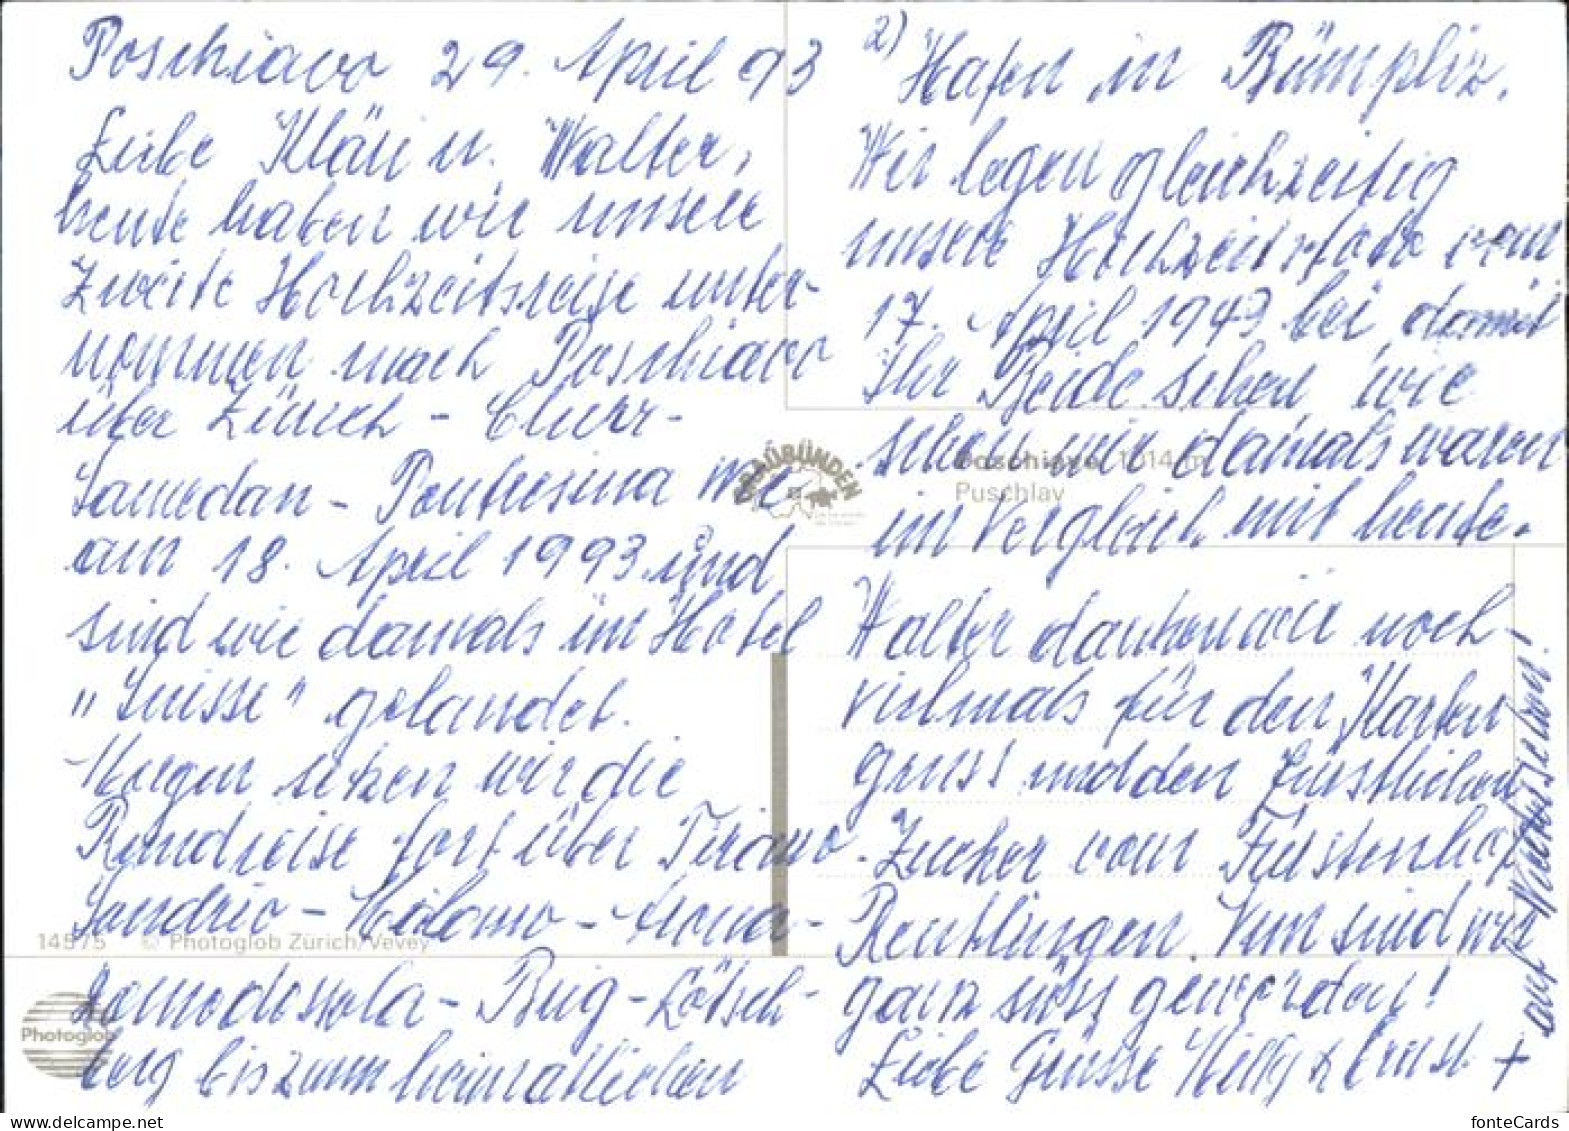 Poschiavo 29. April 93
Liebe Kläri u. Walter,
heute haben wir unsere
zweite Hochzeitsreise unter-
nommen nach Poschiavo
über Zürich - Chur -
Samedan - Pontresina wie
am 18. April 1993 und
sind wie damals im Hotel
"Suisse" gelandet.
Morgen setzen wir die
Rundreise fort über Tirano
Sondrio - Milano - Arona -
Domodossola - Brig - Lötsch-
berg bis zum heimatlichen
2) Hafen in Bümpliz.
Wir legen gleichzeitig
unsere Hochzeitsfoto vom
17. April 1943 bei, damit
Ihr Beide sehen, wie
schön wir damals waren
im Vergleich mit heute.
Walter danken wir noch-
vielmals für den Karten
gruss und den
Zucker vom Fürstenhof
Reutlingen. Nun sind wir
ganz süss geworden!
Liebe Grüsse Willy & Ernst +
auf Wiedersehen!
GRAUBÜNDEN
Poschiavo 1014 m
Puschlav
14575 © Photoglob Zürich/Vevey
Photoglob
www.delcampe.net
fonteCards